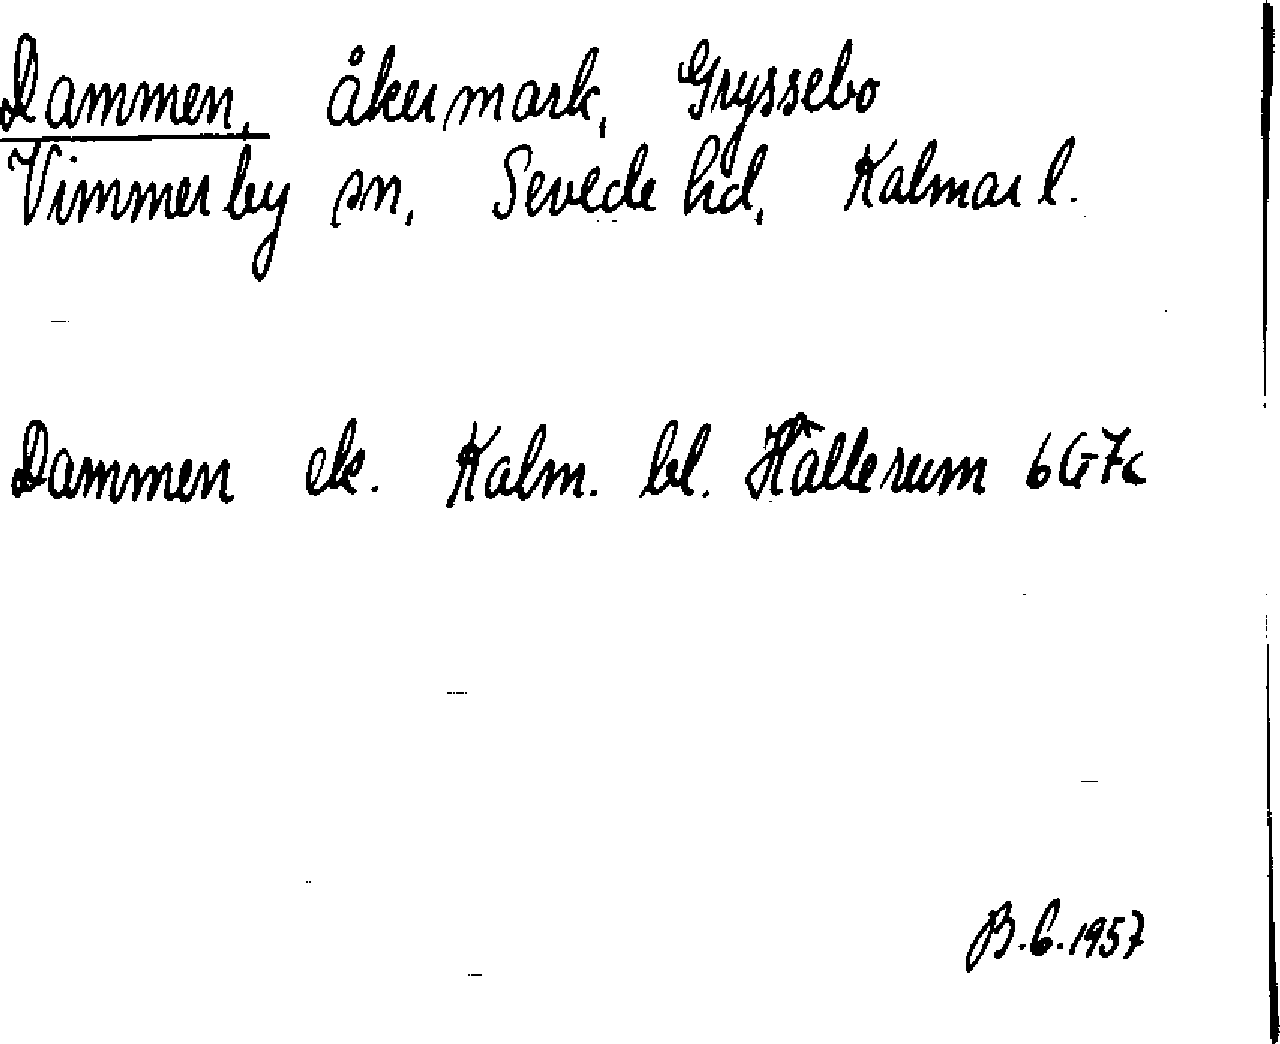 Dammen, åkermark, Gryssebo
Vimmerby sn, Sevede hd, Kalmar l.
Dammen ek. Kalm. bl. Hällerum 6G7c
B.G.1957